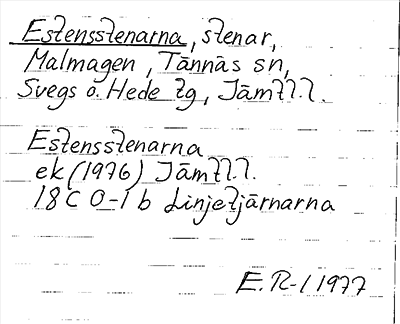 Estensstenarna, stenar,
Malmagen, Tännäs sn,
Svegs o. Hede tg, Jämtl.l.
Estensstenarna
ek (1976) Jämtl.l.
18C 0-1 b Linjetjärnarna
E. R-l 1977